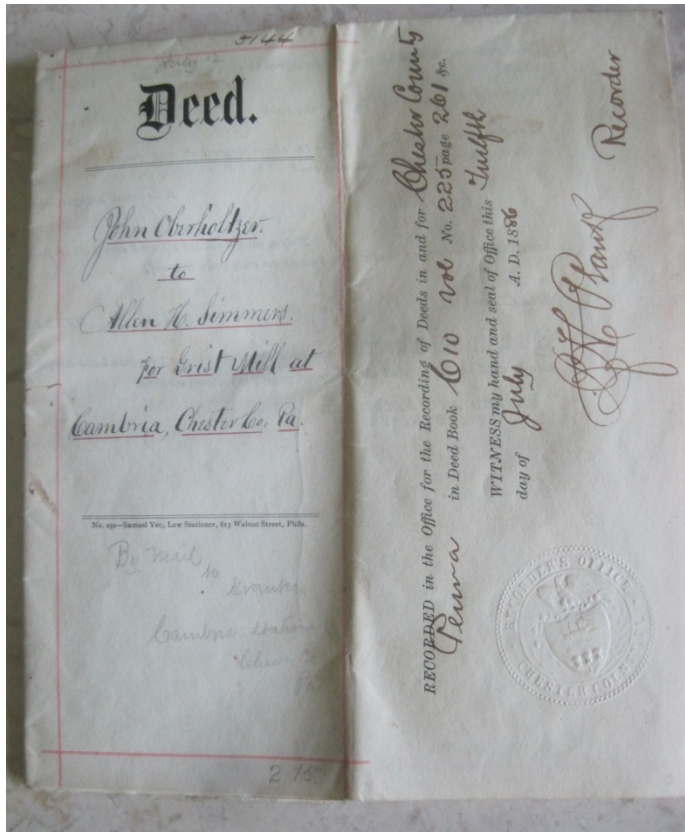 5144
July 12
Deed.
John Oberholtzer.
to
Allen H. Simmers.
for Grist Mill at
Cambria, Chester Co, Pa.
No. 250—Samuel Yeo, Law Stationer, 613 Walnut Street, Phila.
By Mail
to
Grantee
Cambria Station
Chester Co
Pa
2.15
RECORDED in the Office for the Recording of Deeds in and for Chester County
Penna in Deed Book G10 vol No. 225 page 261 &c.
WITNESS my hand and seal of Office this Twelfth
day of July A. D. 1886
Recorder
RECORDER'S OFFICE
CHESTER COUNTY